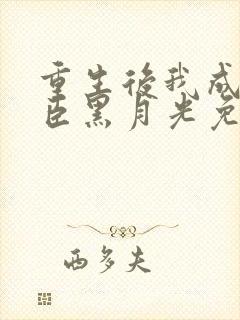 重生後我成
臣黑月光免
西多夫